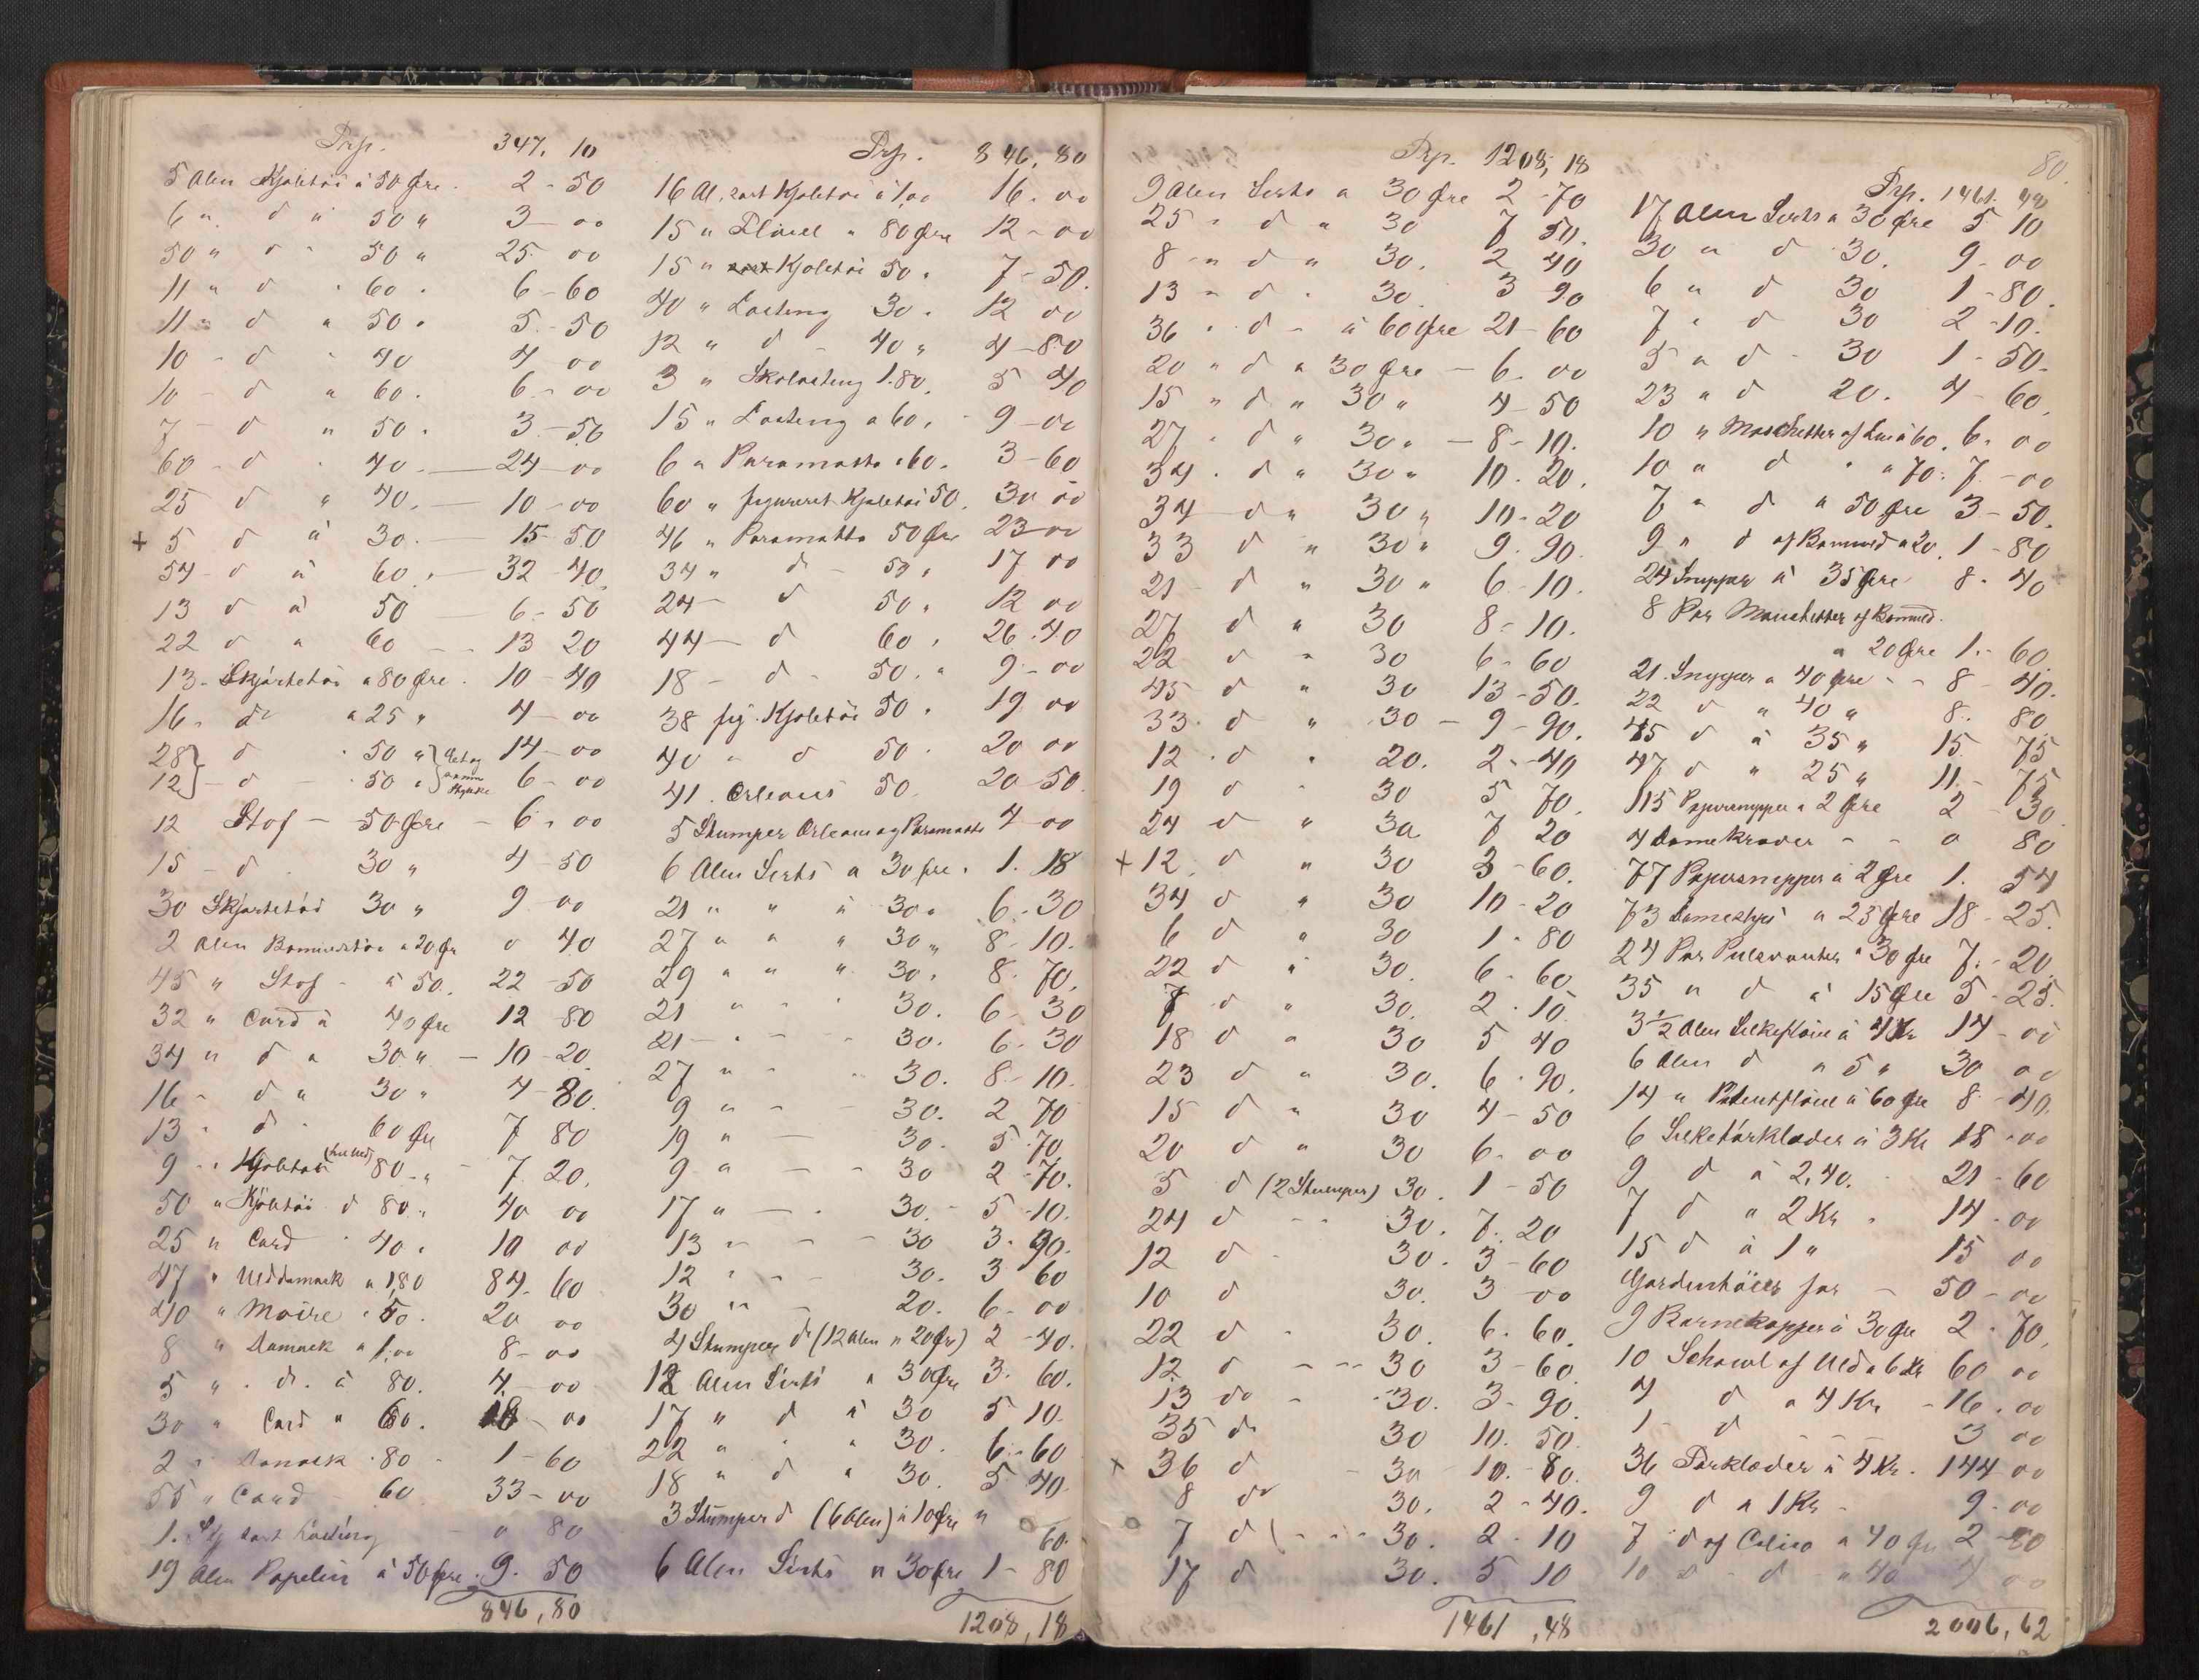 Trp. 347, 10
5 Alen Kjoletöi à 50 Øre. 2-50
6 " d " 50 " 3-00
50 " d - 50 " 25-00
11 " d " 60. 6-60
11 - d " 50. 5-50
10 - d - 40 4-00
10 - d " 60. 6-00
7 - d " 50. 3-50
60 - d . 40. 24-00
25 d " 40. 10-00
+ 5 d à 30. 15-50
54 - d à 60. 32-40
13 d à 50 6-50
22 d " 60 13 20
13 - Skjörtetöi a 80 Øre. 10-40
16. do a 25 " 4-00
28 d . 50 " 14-00
12 - d - . 50 " 6-00
12 Stof - 50 Øre - 6-00
15 - d . 30 " 4-50
30 Skjortetöi 30 " 9-00
2 Alen Bomuldstöi a 20 Øre 0 40
45 " Stof - à 50. 22-50
32 " Card à 40 Øre 12 80
34 " d a 30 " - 10-20
16 - d " 30 " 4-80
13 - d - 60 Øre 7 80
9 - Kjoletöi 80 - " 7 20
50 " Kjoletöi d 80 " 40 00
25 " Card . 40. 10 00
47 " Ulddamask a 1,80 84-60
40 " Moire . 50. 20 00
8 " Damask a 1,00 8-00
5 " . d. à 80. 4-00
30 " Card " 60. 18-00
2 " Damask . 80 1-60
55 " Card - 60 33-00
1. sort Lasting - 0 80
19 Alen Popelin à 50 Øre. 9-50
846, 80
Trp. 846, 80
16 Al. sort Kjoletöi à 1,00 16-00
15 " Flöiel " 80 Øre 12-00
15 " sort Kjoletöi 50. 7-50
40 " Lasting 30. 12 00
12 " d - 40 " 4-80
3 " Skolasting 1.80. 5 40
15 " Lasting a 60. 9-00
6 " Paramatta a 60. 3-60
60 " figureret Kjoletöi 50. 30 00
46 " Paramatta 50 Øre 23-00
34 " d - 50. 17 00
24 - d 50. 12 00
44 - d 60. 26-40
18 - d - 50. 9-00
38 fig. Kjoletöi 50. 19 00
40 " d 50. 20 00
41. Orleans 50. 20-50
5 Stumper Orleans og Paramatta 4-00
6 Alen Sirts a 30 Øre. 1. 18
21 " " à 30. 6-30
27 " " " 30 " 8-10.
29 " " " 30. 8-70.
21 " - ' 30. 6-30
21 - - - 30. 6-30
27 " - - 30. 8-10.
9 " - - 30. 2 70
19 " - 30. 5-70
9 " - - 30 2-70.
17 " - . 30. - 5-10.
13 - - - 30 3-90.
12 " - - 30. 3 60
30 " - 20. 6-00
4 Stumper d (12 Alen a 20 Øre) 2-40.
12 Alen Sirts a 30 Øre 3. 60.
17 " d à 30 5 10.
22 " " " 30. 6-60
18 " d " 30. 5 40.
3 Stumper d (6 Alen) à 10 Øre " 60.
6 Alen Sirts a 30 Øre 1-80
1208, 18
Trp. 1208, 18
9 Alen Sirts a 30 Øre 2-70
25 - d " 30 7 50.
8 - " d " 30. 2 40
13 - d . 30 3 90
36 . d - à 60 Øre 21-60
20 " d a 30 Øre - 6. 00
15 " d " 30 " 4-50
27 . d " 30 " - 8-10.
34 . d " 30 " 10-20.
34 - d " 30 " 10-20
33 d " 30 " 9-90.
21 - d " 30 " 6-10.
27 d " 30 8-10.
22 d - 30 6-60
45 d " 30 13-50.
33. d " 30 - 9-90.
12. d . 20. 2-40
19 d - 30 5 70.
24 d " 30 7 20
+ 12. d " 30 3-60.
34 d " 30 10-20
6 d " 30 1-80
22 d " 30. 6-60
7 d " 30. 2-10
18 d " 30 5 40
23 d " 30. 6-90.
15 d " 30 4-50
20 d " 30 6-00
5 d (2 Stumper) 30. 1-50
24 d - - 30. 7. 20
12 d - 30. 3-60
10 d 30. 3-00
22 d - 30. 6-60.
12 d - - 30 3-60.
13 do - 30. 3-90.
35 d 30 10. 50.
x 36 d - 30 10.-80.
8 do 30. 2-40.
7 d ( - - - 30. 2-10
17 d 30. 5 10
1461, 48
80.
Trp. 1461. 48
17 Alen Sirts a 30 Øre 5 10
30 " d 30. 9-00
6 " d 30 1-80.
7 " d 30 2-10.
5 " d - 30 1-50.
23 " d 20. 4-60.
10 " Manchetter af Lin à 60. 6. 00
10 " d " a 70. 7-00
7 " d a 50 Øre 3-50.
9 " d af Bomuld a 20. 1-80
24 Snipper à 35 Øre 8. 40
8 Par Manchetter af Bomuld.
a 20 Øre 1.-60.
21. Snipper a 40 Øre - - 8-40.
22 d " 40 " 8. 80
45 d à 35 " 15. 75
47 d " 25 " 11-75
115 Papirsnipper a 2 Øre 2-30
4 Damekraver - - 0 80
77 Papirsnipper à 2 Øre 1. 54
73 Dameslips a 25 Øre 18-25.
24 Par Pulsvanter a 30 Øre 7.-20
35 " d à 15 Øre 5-25.
3 1/2 Alen Silkeflöiel à 4 Kr 14-00
6 Alen d " 5 " 30 00
14 " Patentflöiel à 60 Øre 8-40.
6 Silketörklæder à 3 Kr 18-00
9 d à 2,40. 21-60
7 d a 2 Kr. 14-00
15 d à 1 " 15 00
Gardinhöier for - 50-00
9 Barnekapper à 30 Øre 2-70.
10 Schawl af Uld a 6 Kr 60 00
4 d a 4 Kr. - 16. 00
1 - d - - - 3 00
36 Törklæder à 4 Kr. 144 00
9 d a 1 Kr - 9-00
7 d af Calico a 40 Øre 2-80
10 - d - a 40 4 00
2006, 62